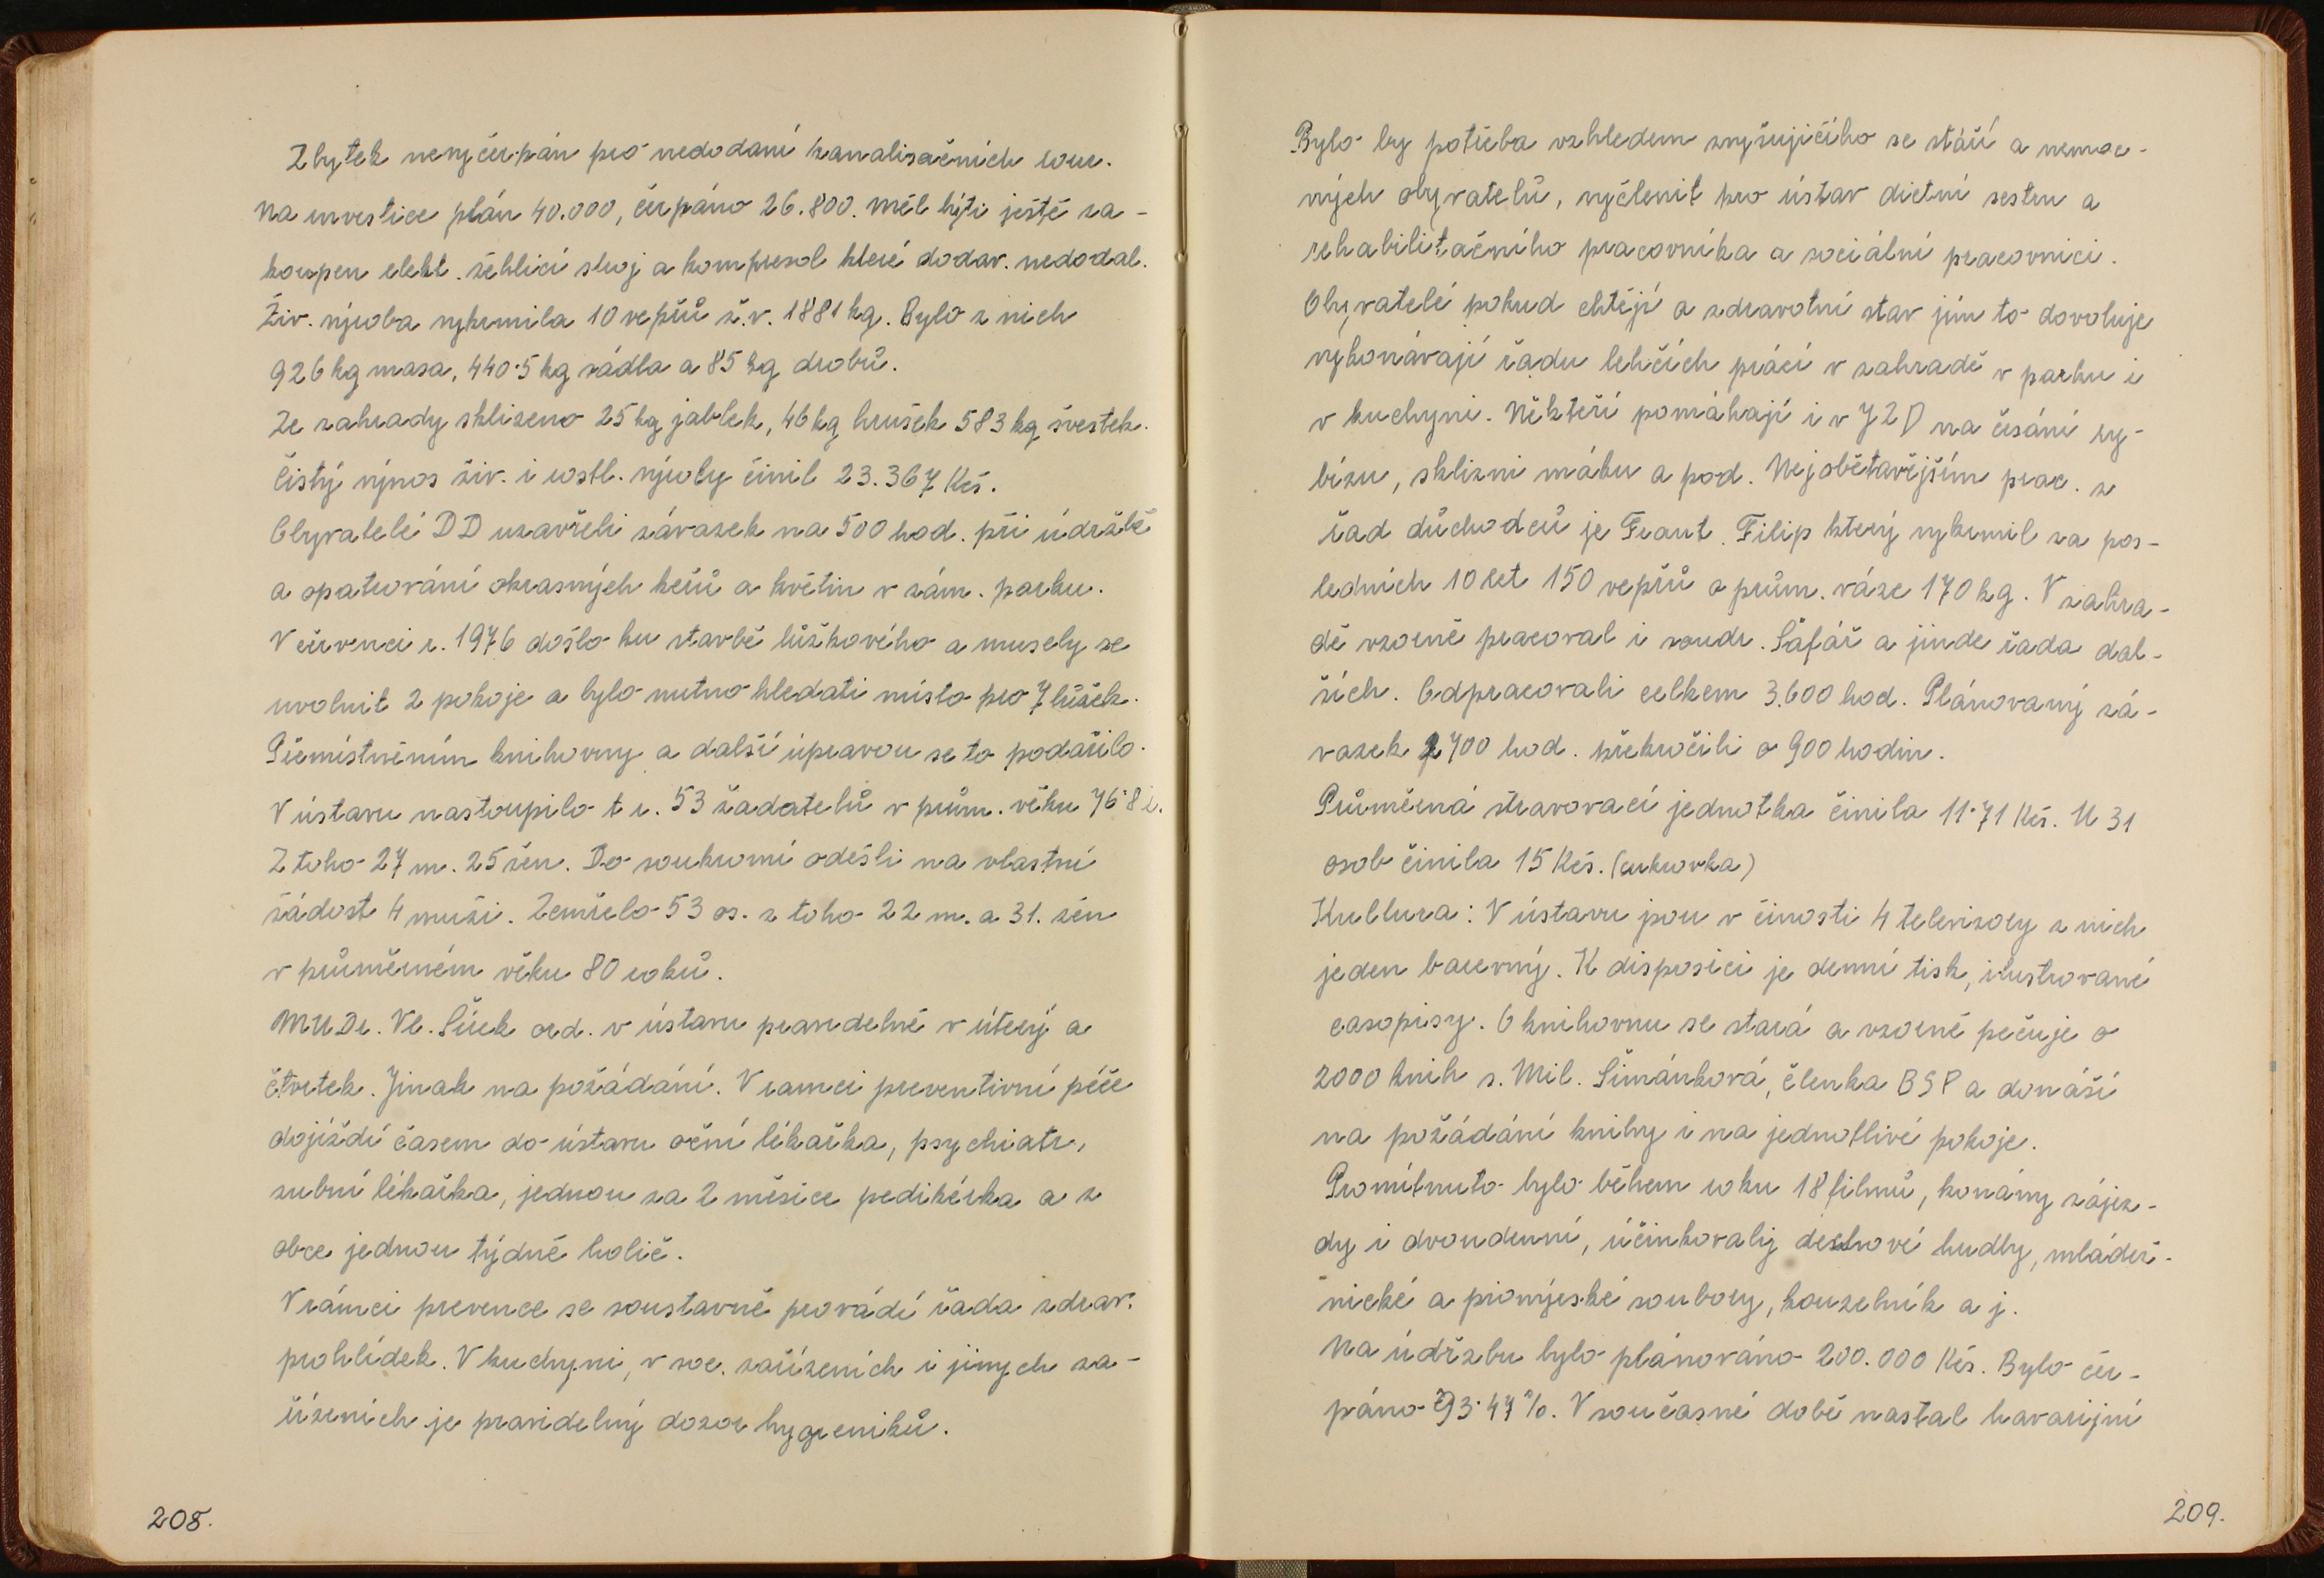 Zbytek nevyčerpán pro nedodání kanalisačních rour.
Na investice plán 40.000, čerpáno 26.800. Měl býti ještě za-
koupen elekt. žehlící stroj a kompresol které dodav. nedodal.
Živ. výroba vykrmila 10 vepřů ž.v. 1881 kg. Bylo z nich
926 kg masa, 440·5 kg sádla a 85 kg drobů.
Ze zahrady sklizeno 25 kg jablek, 46 kg hrušek 583 kg švestek.
Čistý výnos živ. i rostl. výroby činil 23.367 Kčs.
Obyvatelé DD uzavřeli závazek na 500 hod. při údržbě
a opatrování okrasných keřů a květin v zám. parku.
V červenci r. 1976 došlo ku stavbě lůžkového a musely se
uvolnit 2 pokoje a bylo nutno hledati místo pro 7 lůžek.
Přemístněním knihovny a další úpravou se to podařilo.
V ústavu nastoupilo t r. 53 žadatelů v prům. věku 76·8 r.
Z toho 27 m. 25 žen. Do soukromí odešli na vlastní
žádost 4 muži. Zemřelo 53 os. z toho 22 m. a 31. žen
v průměrném věku 80 roků.
MUDr. Vl. Šírek ord. v ústavu pravidelně v úterý a
čtvrtek. Jinak na požádání. V ramci preventivní péče
dojíždí časem do ústavu oční lékařka, psychiatr,
zubní lékařka, jednou za 2 měsíce pedikérka a z
obce jednou týdně holič.
V rámci prevence se soustavně provádí řada zdrav.
prohlídek. V kuchyni, v soc. zařízeních i jiných za-
řízeních je pravidelný dozor hygieniků.
208.
Bylo by potřeba vzhledem zvyšujícího se stáří a nemoc-
ných obyvatelů, vyčlenit pro ústav dietní sestru a
rehabilitačního pracovníka a sociální pracovnici.
Obyvatelé pokud chtějí a zdravotní stav jim to dovoluje
vykonávají řadu lehčích prácí v zahradě v parku i
v kuchyni. Někteří pomáhají i v JZD na česání ry-
bízu, sklizni máku a pod. Nejobětavějším prac. z
řad důchodců je Frant. Filip který vykrmil za pos-
ledních 10 let 150 vepřů o prům. váze 170 kg. V zahra-
dě vzorně pracoval i soudr. Šafář a jinde řada dal-
ších. Odpracovali celkem 3.600 hod. Plánovaný zá-
vazek 2700 hod. překročili o 900 hodin.
Průměrná stravovací jednotka činila 11·71 Kčs. U 31
osob činila 15 Kčs. (cukrovka)
Kultura: V ústavu jsou v činosti 4 televizory z nich
jeden barevný. K disposici je denní tisk, ilustrované
casopisy. O knihovnu se stará a vzorně pečuje o
2000 knih s. Mil. Šimánková, členka BSP a donáší
na požádání knihy i na jednotlivé pokoje.
Promítnuto bylo během roku 18 filmů, konány zájez-
dy i dvoudenní, účinkovaly dechové hudby, mládež-
nické a pionýrské soubory, kouzelník a j.
Na údržbu bylo plánováno 200.000 Kčs. Bylo čer-
páno 93·47 %. V současné době nastal havarijní
209.